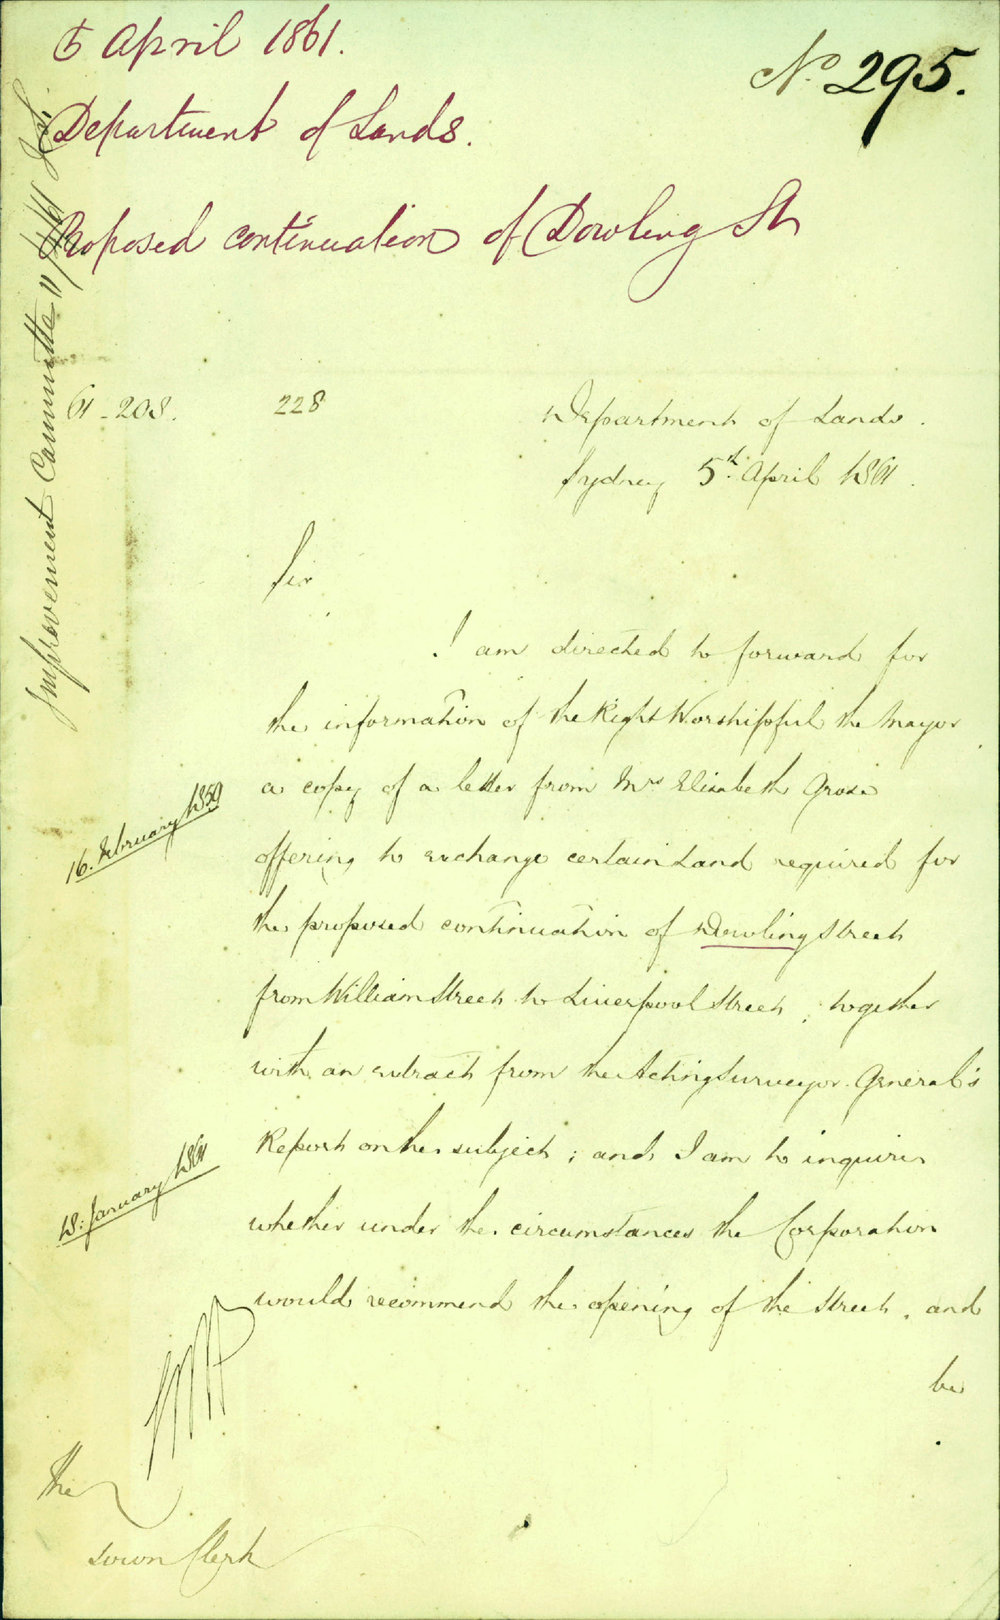 5 April 1861.
No. 295.
Department of Lands.
Proposed continuation of Dowling St
Improvement Committee 11/4/61
61-208.
228
Department of Lands.
Sydney 5th April 1861.
Sir
I am directed to forward for
the information of the Right Worshipful the Mayor
a copy of a letter from Mrs Elizabeth Grose
16. February 1859
offering to exchange certain Land required for
the proposed continuation of Dowling Street
from William Street to Liverpool Street, together
with an extract from the Acting Surveyor General's
Report on the subject; and I am to inquire
18: January 1861
whether under the circumstances the Corporation
would recommend the opening of the Street, and
be
The
Town Clerk